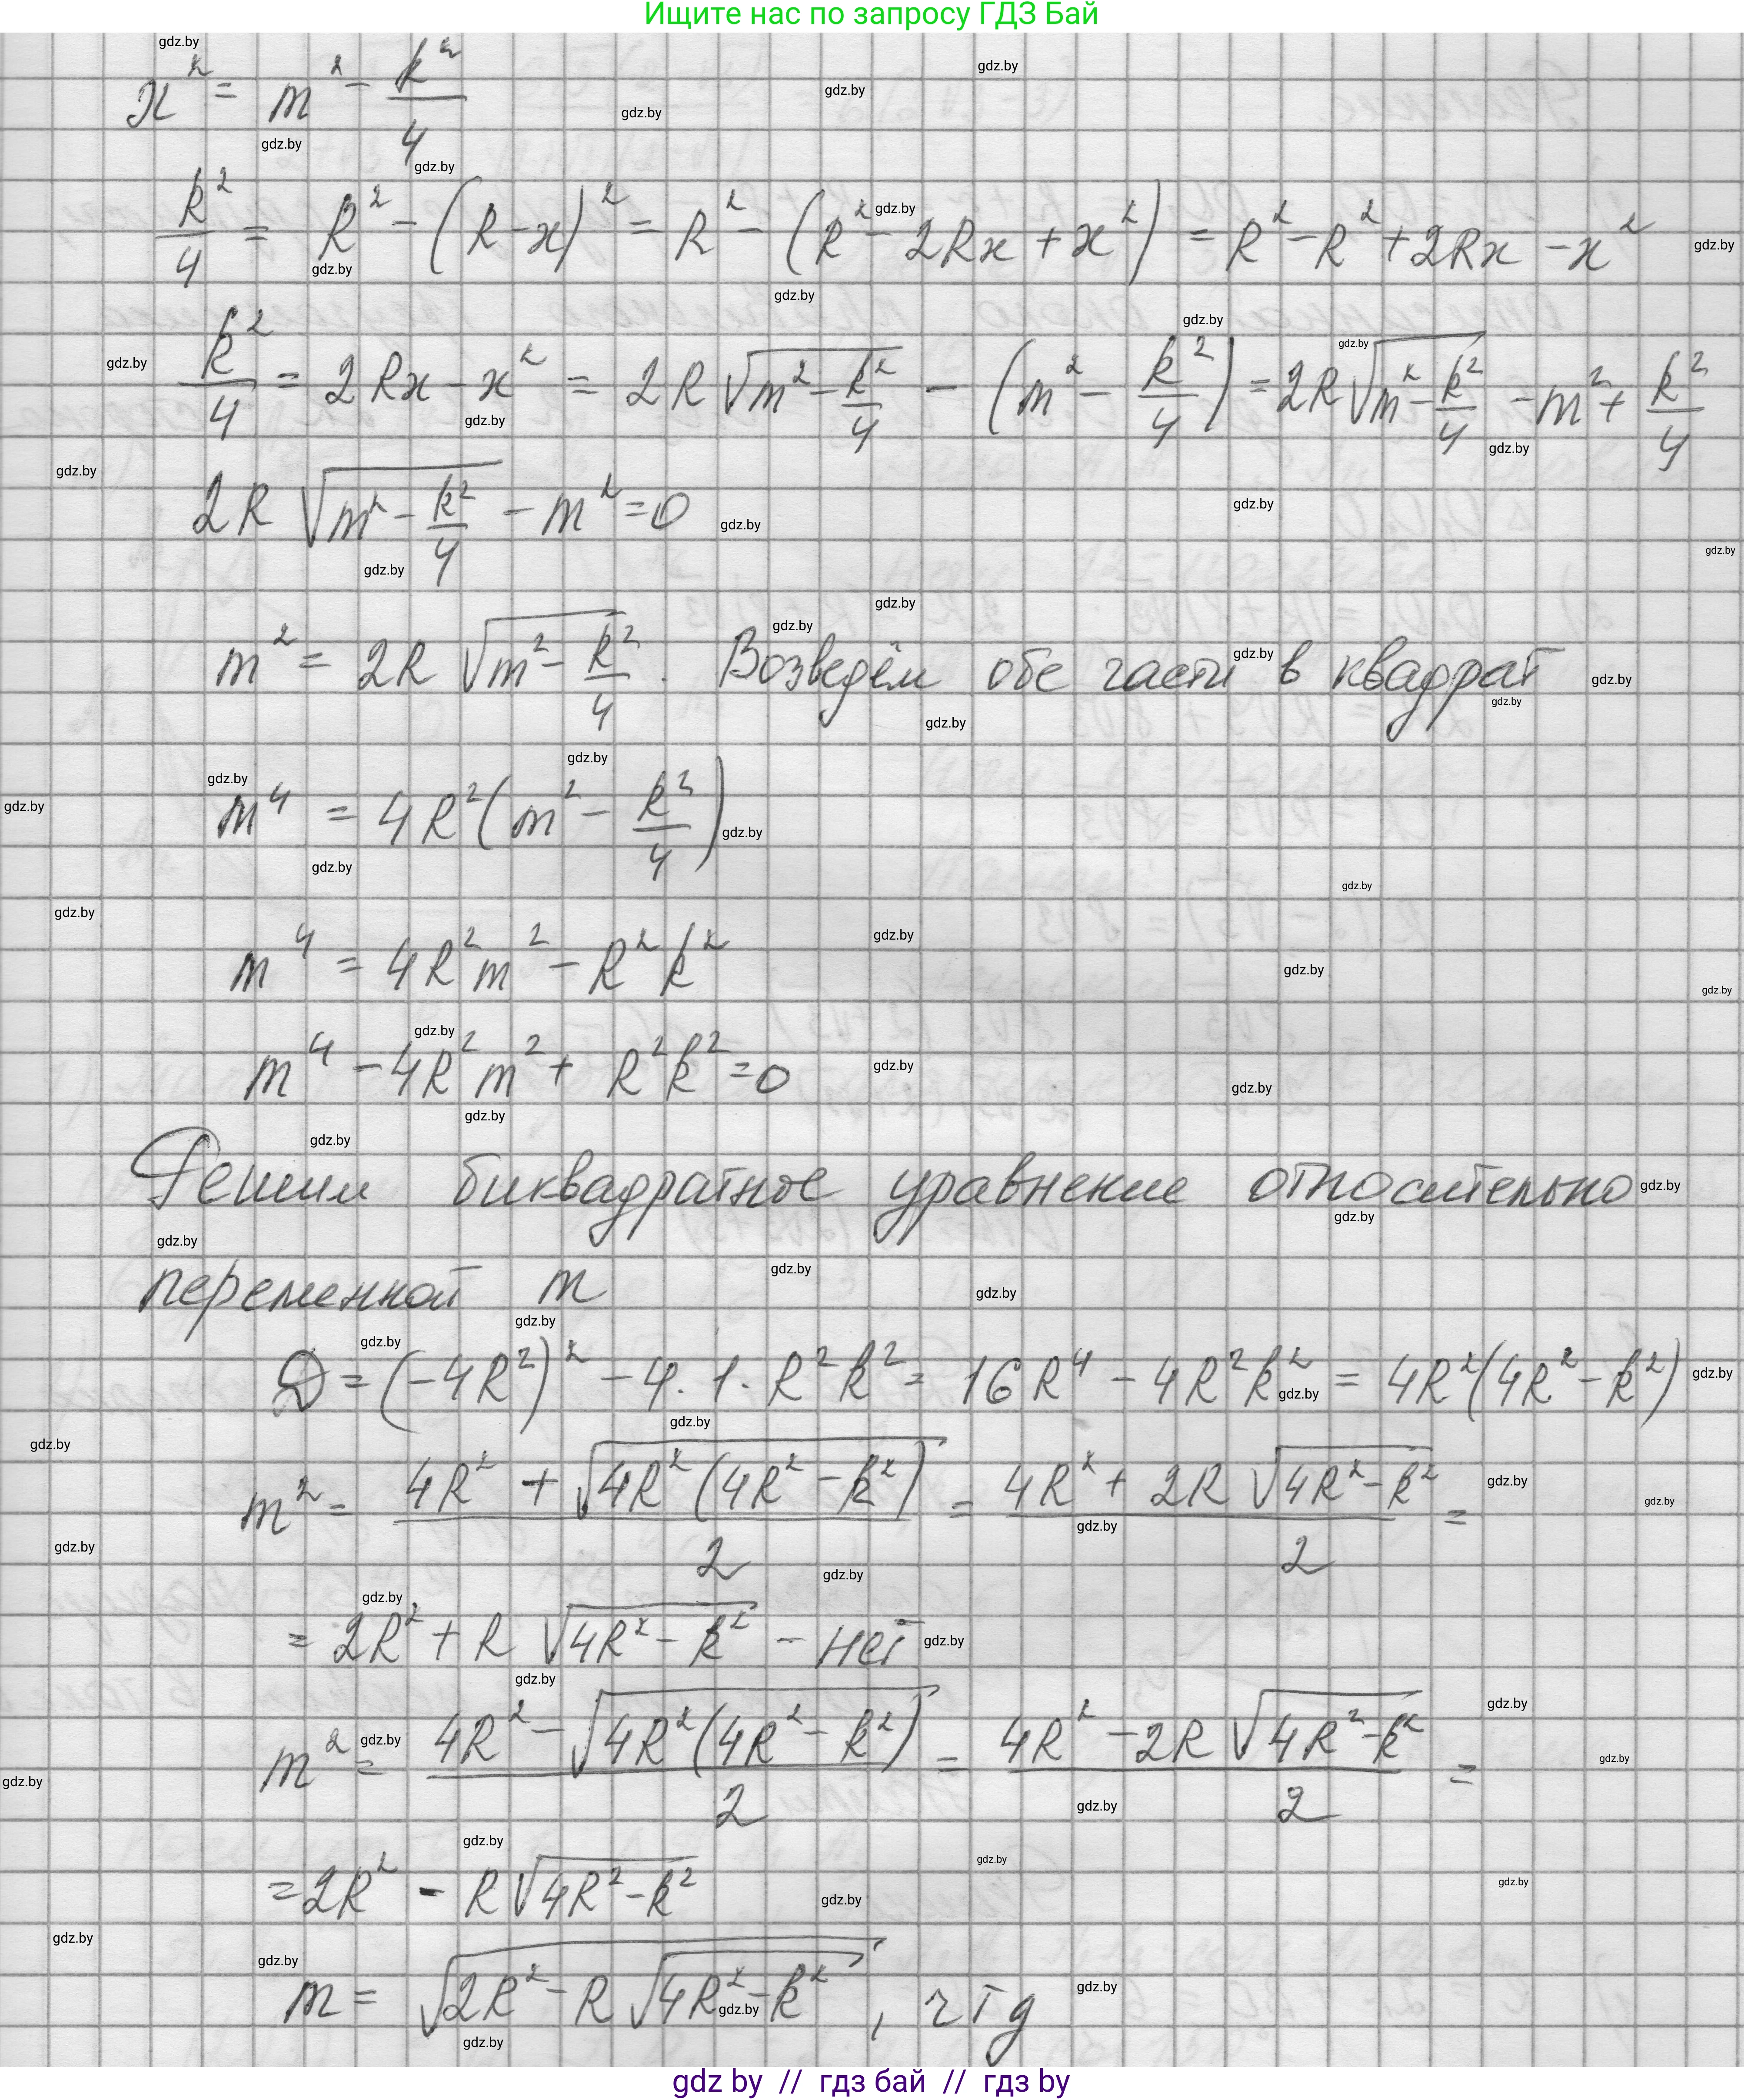 Ищите нас по запросу ГДЗ Бай
x² = m² - k²/4
k²/4 = R² - (R-x)² = R² - (R² - 2Rx + x²) = R² - R² + 2Rx - x²
k²/4 = 2Rx - x² = 2R √(m² - k²/4) - (m² - k²/4) = 2R √(m² - k²/4) - m² + k²/4
2R √(m² - k²/4) - m² = 0
m² = 2R √(m² - k²/4). Возведём обе части в квадрат
m⁴ = 4R² (m² - k²/4)
m⁴ = 4R²m² - R²k²
m⁴ - 4R²m² + R²k² = 0
Решим биквадратное уравнение относительно
переменной m
D = (-4R²)² - 4 · 1 · R²k² = 16R⁴ - 4R²k² = 4R²(4R² - k²)
m² = (4R² + √(4R²(4R² - k²)))/2 = (4R² + 2R √(4R² - k²))/2 =
= 2R² + R √(4R² - k²) - нет
m² = (4R² - √(4R²(4R² - k²)))/2 = (4R² - 2R √(4R² - k²))/2 =
= 2R² - R √(4R² - k²)
m = √(2R² - R √(4R² - k²)), чтд
gdz by // гдз бай // гдз by